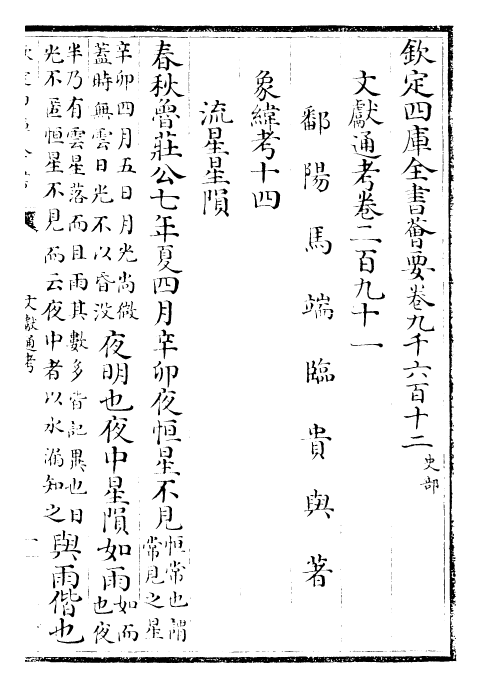 欽定四庫全書薈要卷九千六百十二 史部
文獻通考卷二百九十一
鄱陽馬端臨貴與著
象緯考十四
流星星隕
春秋魯莊公七年夏四月辛卯夜恒星不見 恒常也謂
常見之星
辛卯四月五日月光尚微
蓋時無雲日光不以昏没 夜明也夜中星隕如雨 如而
也夜
半乃有雲星落而且雨其數多皆記異也日
光不匿恒星不見而云夜中者以水漏知之 與雨偕也
文獻通考